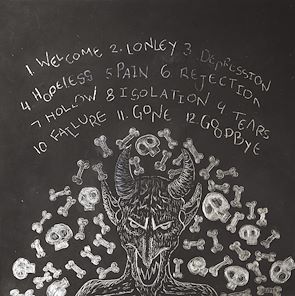 1. WELCOME 2. LONLEY 3 DEPRESSION
4 HOPELESS 5 PAIN 6 REJECTION
7 HOLLOW 8 ISOLATION 9 TEARS
10 FAILURE 11. GONE 12 GOODBYE